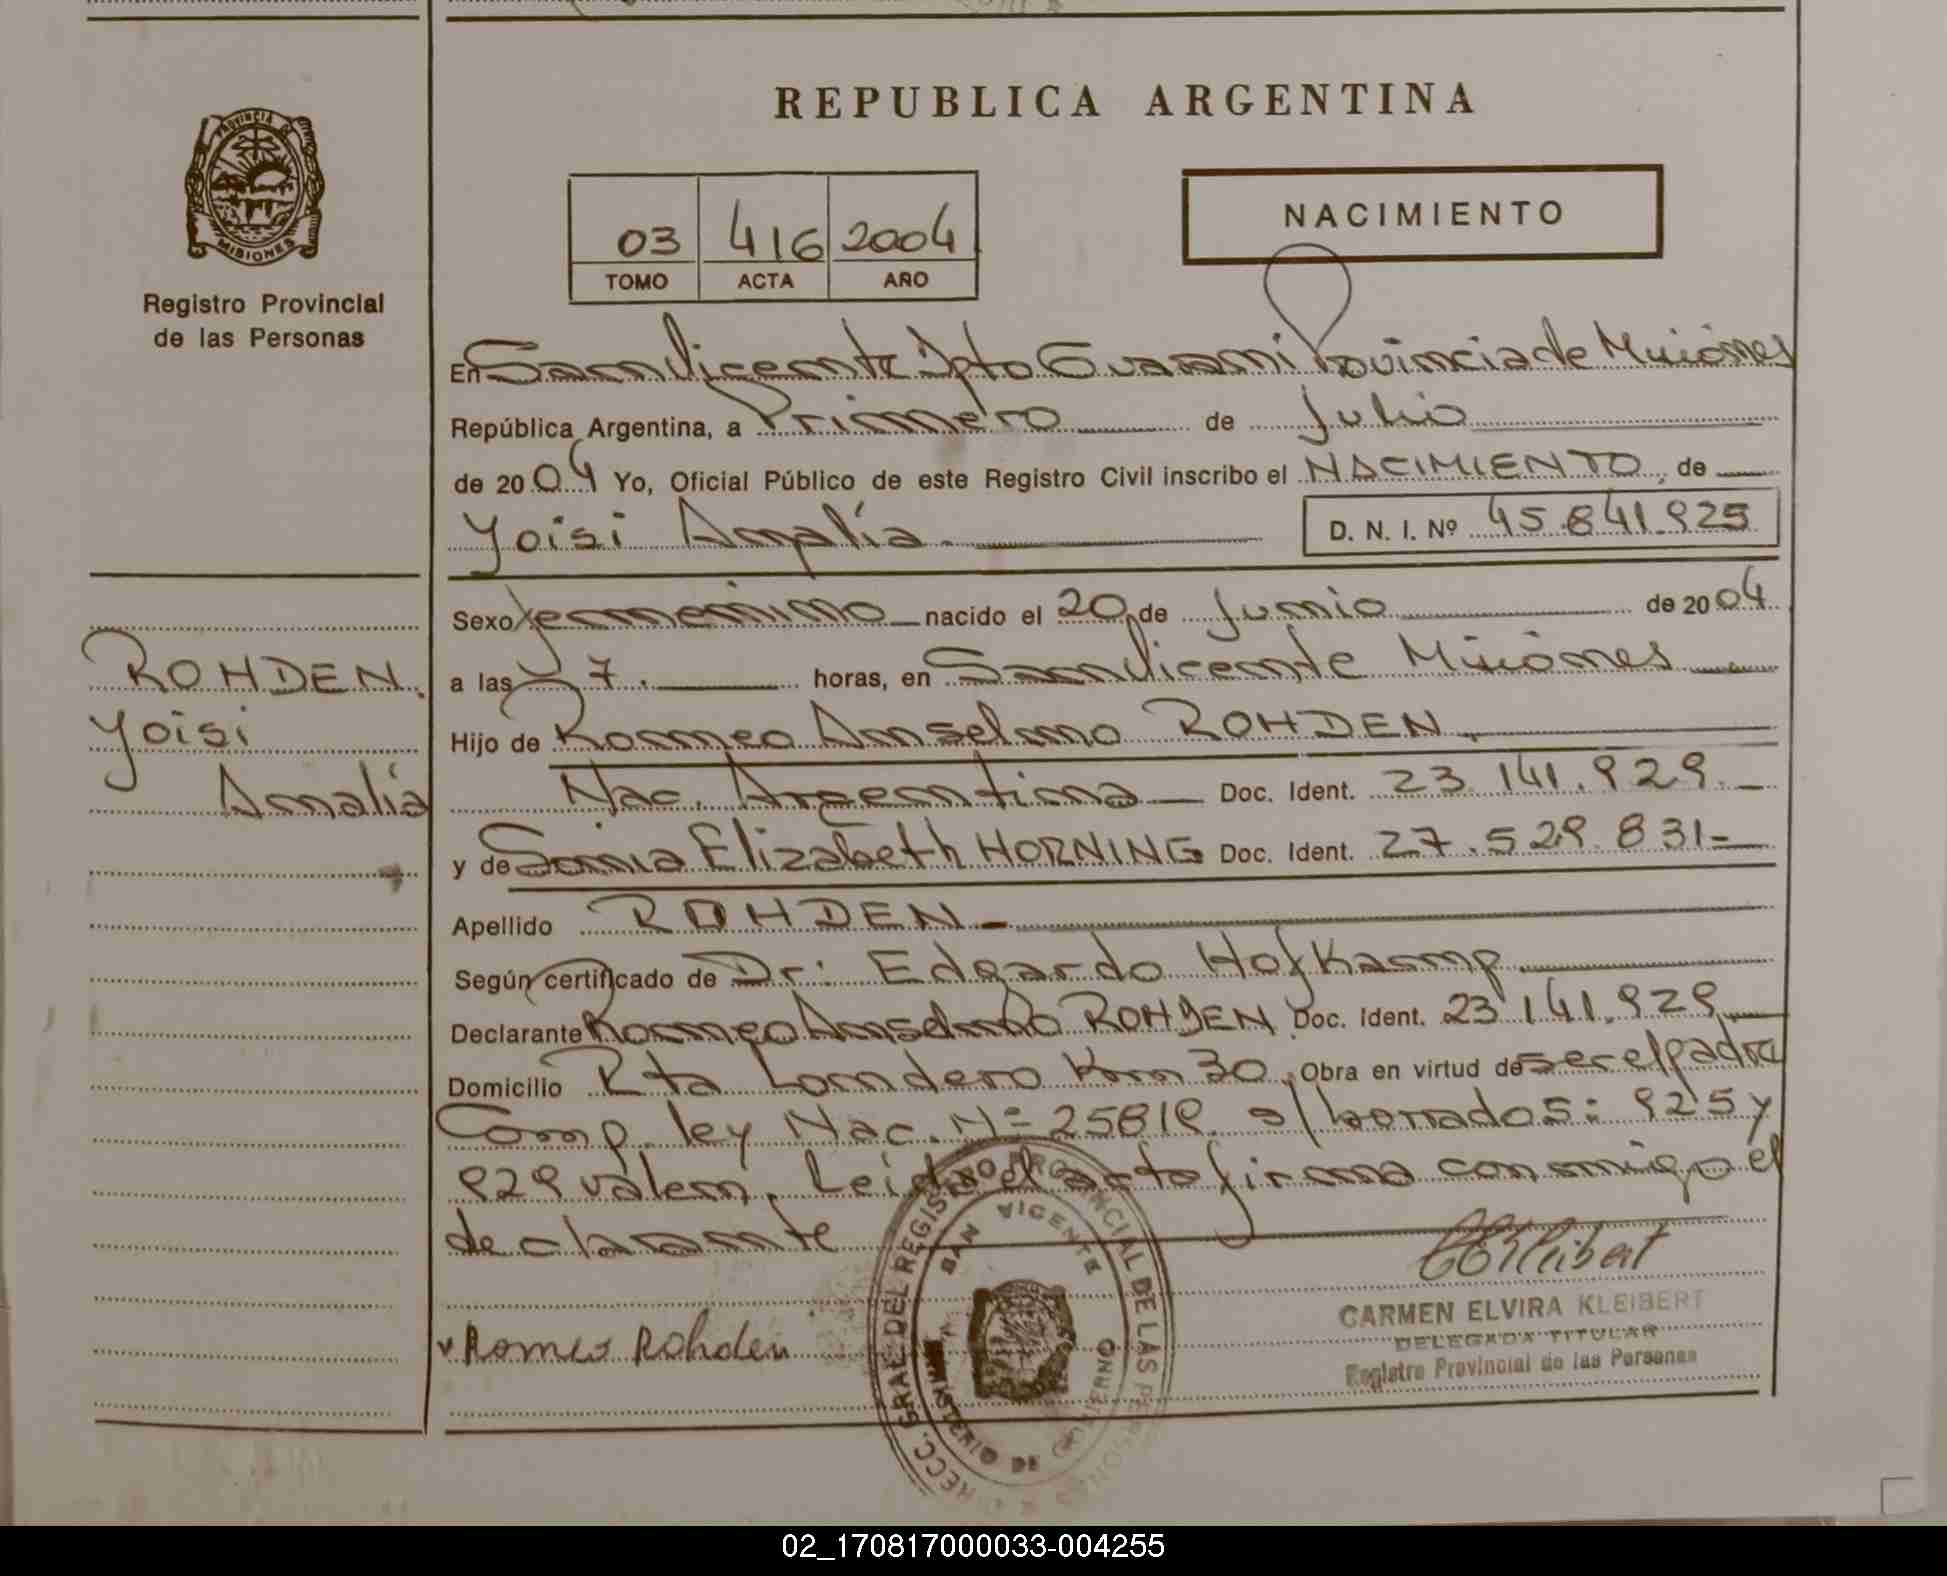 REPUBLICA ARGENTINA
PROVINCIA DE
MISIONES
Registro Provincial
de las Personas
03 416 2004
TOMO ACTA AÑO
NACIMIENTO
En San Vicente Dpto Guarani Provincia de Misiones
República Argentina, a Primero de Julio
de 2004 Yo, Oficial Público de este Registro Civil inscribo el NACIMIENTO, de
Yoisi Amalía
D. N. I. Nº 45.841.925
Sexo femenino nacido el 20 de Junio de 2004
a las 7. horas, en San Vicente Misiones
Hijo de Romeo Anselmo ROHDEN.
Nac. Argentina Doc. Ident. 23.141.929.
y de Sonia Elizabeth HORNING Doc. Ident. 27.529.831-
Apellido ROHDEN-
Según certificado de Dr: Edgardo Hofkamp
Declarante Romeo Anselmo ROHDEN Doc. Ident. 23.141.929
Domicilio Rta Londero Km 30. Obra en virtud de ser el padre
Comp. ley Nac. Nº 25819. s/borrados: 925 y
929 valen. Leida el acta firma conmigo el
declarante
ROHDEN.
Yoisi
Amalía
Romeo Rohden
CARMEN ELVIRA KLEIBERT
DELEGADA TITULAR
Registro Provincial de las Personas
DIRECC. GRAL. DEL REGISTRO PROVINCIAL DE LAS PERSONAS
SAN VICENTE
MINISTERIO DE GOBIERNO
02_170817000033-004255